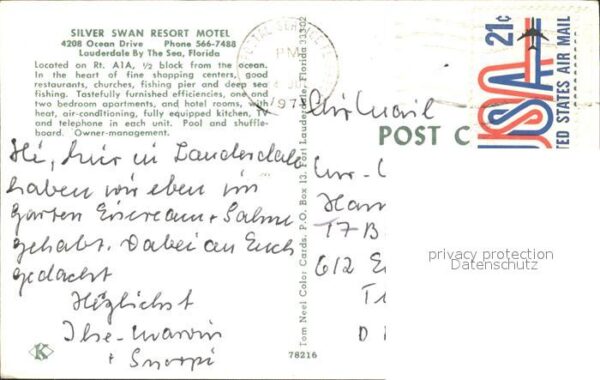 SILVER SWAN RESORT MOTEL
4208 Ocean Drive Phone 566-7488
Lauderdale By The Sea, Florida
Located on Rt. A1A, ½ block from the ocean.
In the heart of fine shopping centers, good
restaurants, churches, fishing pier and deep sea
fishing. Tastefully furnished efficiencies, one and
two bedroom apartments, and hotel rooms, with
heat, air-conditioning, fully equipped kitchen, TV
and telephone in each unit. Pool and shuffle-
board. Owner-management.
Hi, hier in Lauderdale
haben wir eben im
Garten Eiscream + Sahne
gehabt. Dabei an Euch
gedacht
Herzlichst
Ilse-Marvin
+ Snoopi
K
78216
Tom Neel Color Cards, P.O. Box 13, Fort Lauderdale, Florida 333-02
PM
197
Air Mail
POST C
21c
USA
TED STATES AIR MAIL
Han
T7 B
612
D
privacy protection
Datenschutz